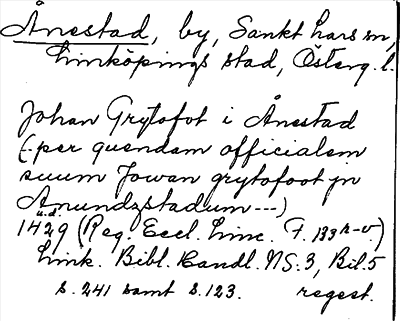 Ånestad, by, Sankt Lars sn,
Linköpings stad, Österg. l.
Johan Grytofot i Ånestad
(: per quendam officialem
suum Jowan grytofoot jn
Amundzstadum ---)
u.d.
1429 (Reg. Eccl. Linc. F. 133 r-v.)
Link. Bibl. Handl. NS. 3, Bil. 5
s. 241 samt s. 123. regest.